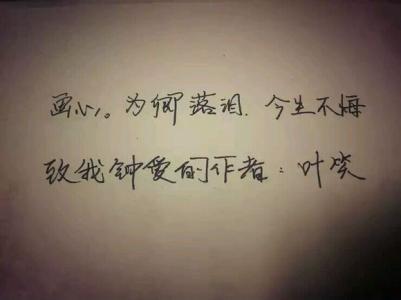 画心。为卿落泪.今生不悔
致我钟爱的作者：叶笑